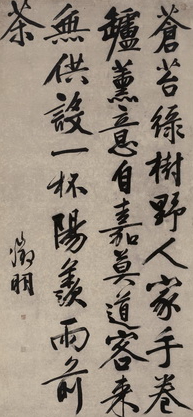 蒼苔綠樹野人家手卷
罏薰意自嘉莫道客来
無供設一杯陽羨雨前
茶
徵明